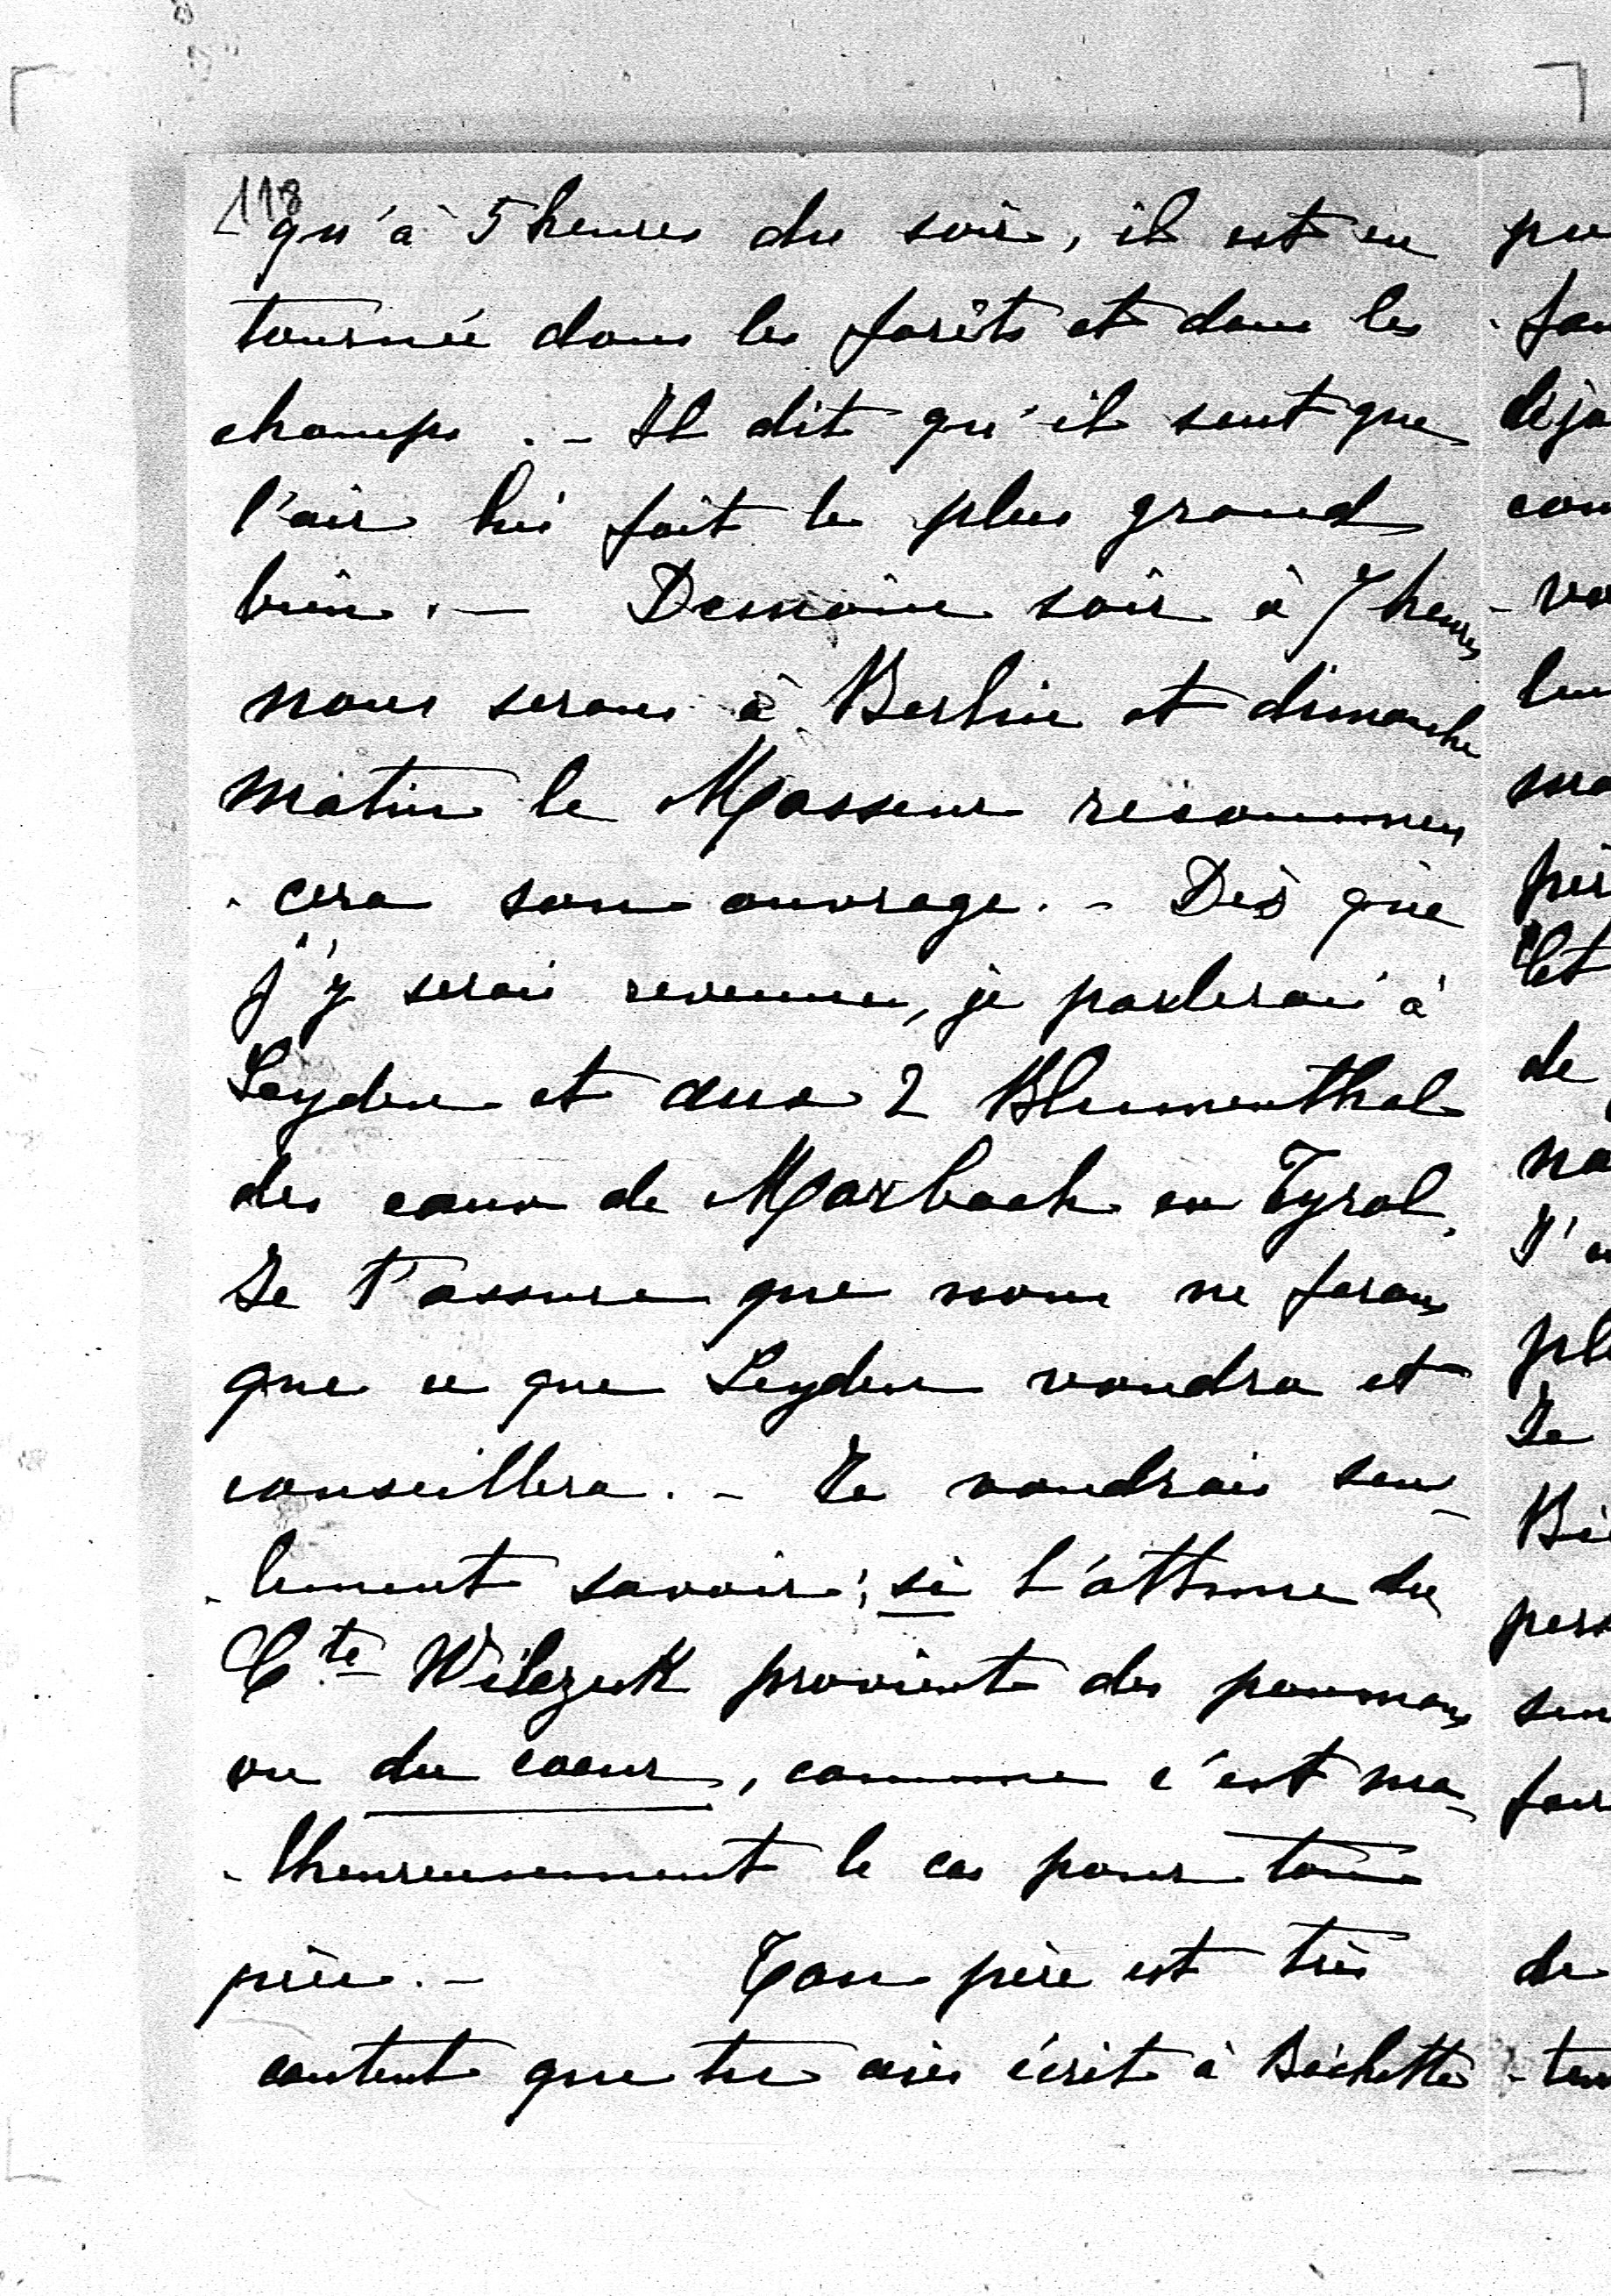 118
qu'à 5 heures du soir, il est en
tournée dans les forêts et dans les
champs. - Il dit qu'il sent que
l'air lui fait le plus grand
bien. — Demain soir à 7 heures
nous serons à Berlin et dimanche
matin le Masseur recommen
- cera son ouvrage. - Dès que
j'y serai revenue, je parlerai à
Leyden et aux 2 Blumenthal
des eaux de Marbach en Tyrol.
Je t'assure que nous ne ferons
que ce que Leyden voudra et
conseillera. - Je voudrais seu-
- lement savoir; si l'asthme du
Cte Wilczek provient des poumons
ou du coeur, comme c'est ma-
- lheureusement le cas pour ton
père. - Ton père est très
content que tu aies écrit à Béchette
pu
fan
déja
com
- vo
ma
pèr
Et
de
na
J'a
pl
Je
Bi
pers
sen
fair
de
- ten